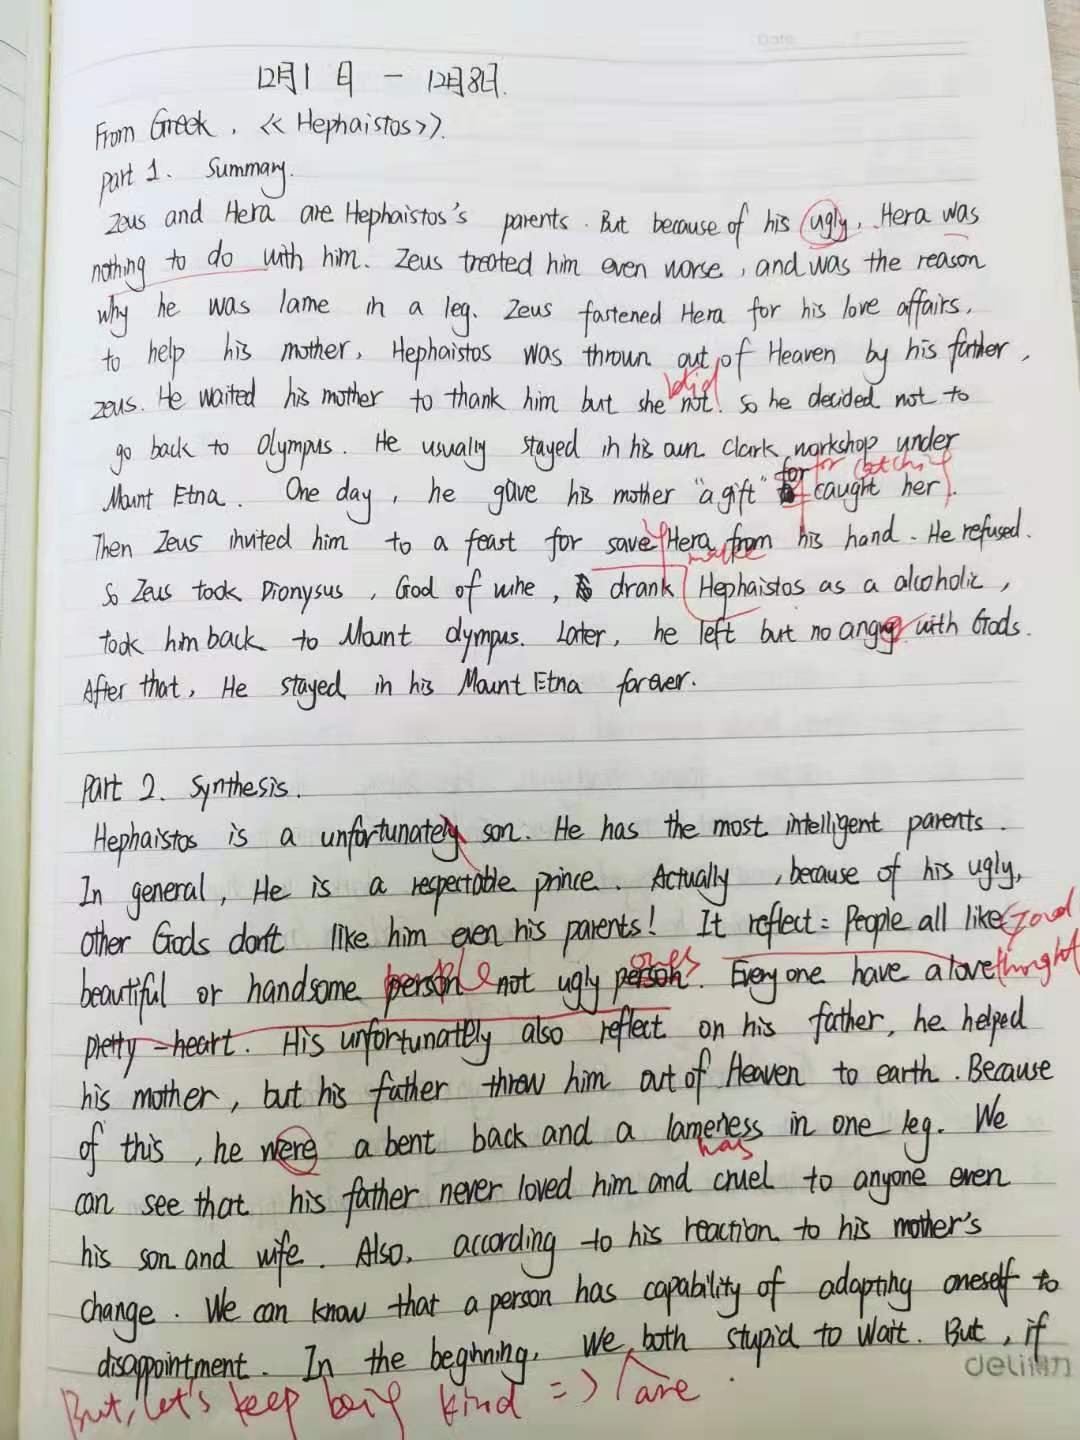 12月1日 - 12月8日.
From Greek, << Hephaistos >>.
part 1. Summary.
Zeus and Hera are Hephaistos's parents. But because of his ugly, Hera was
nothing to do with him. Zeus treated him even worse, and was the reason
why he was lame in a leg. Zeus fastened Hera for his love affairs,
to help his mother, Hephaistos was thrown out of Heaven by his father,
did
zeus. He waited his mother to thank him but she not. So he decided not to
go back to Olympus. He usually stayed in his own Clark workshop under
for catching
Mount Etna. One day, he gave his mother "a gift" for caught her.
Then Zeus invited him to a feast for save Hera from his hand. He refused.
make
So Zeus took Dionysus, God of wine, drank Hephaistos as a alcoholic,
took him back to Mount Olympus. Later, he left but no angry with Gods.
After that, He stayed in his Mount Etna forever.
Part 2. Synthesis.
Hephaistos is a unfortunately son. He has the most intelligent parents.
In general, He is a respectable prince. Actually, because of his ugly,
other Gods don't like him even his parents! It reflect: People all like good
beautiful or handsome person people not ugly person ones. Every one have a love thought
pretty-heart. His unfortunately also reflect on his father, he helped
his mother, but his father threw him out of Heaven to earth. Because
of this, he were a bent back and a lameness in one leg. We
has
can see that his father never loved him and cruel to anyone even
his son and wife. Also, according to his reaction to his mother's
change. We can know that a person has capability of adapting oneself to
disappointment. In the beginning, We both stupid to wait. But, if
But, let's keep being kind => are
deli